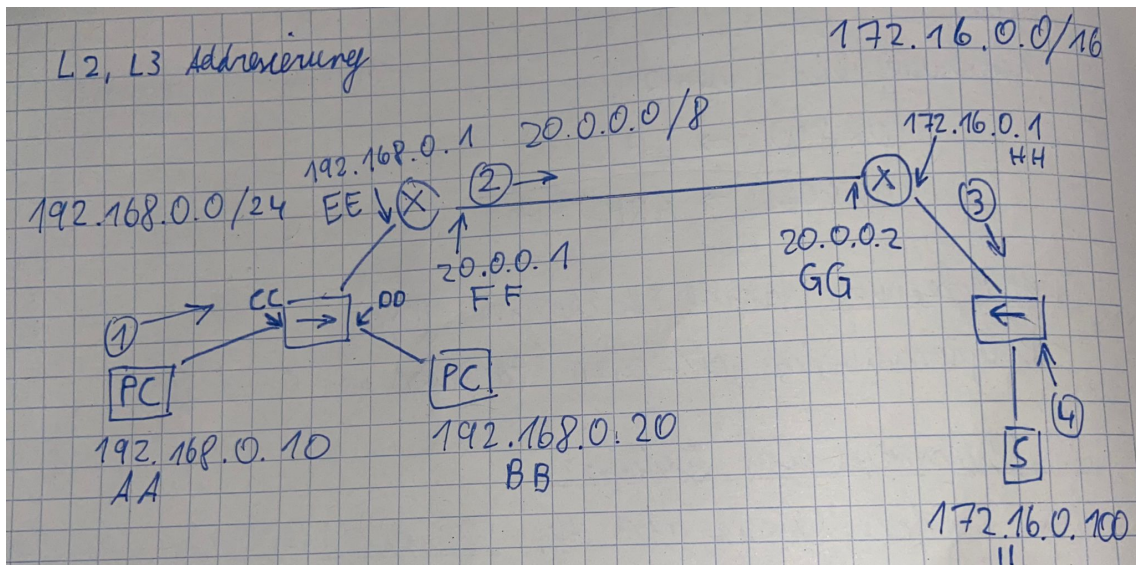 172.16.0.0/16
L2, L3 Addresierung
192.168.0.1
20.0.0.0/8
172.16.0.1
HH
192.168.0.0/24
EE
X
2
X
3
20.0.0.1
FF
20.0.0.2
GG
CC
DD
1
PC
PC
4
S
192.168.0.10
AA
192.168.0.20
BB
172.16.0.100